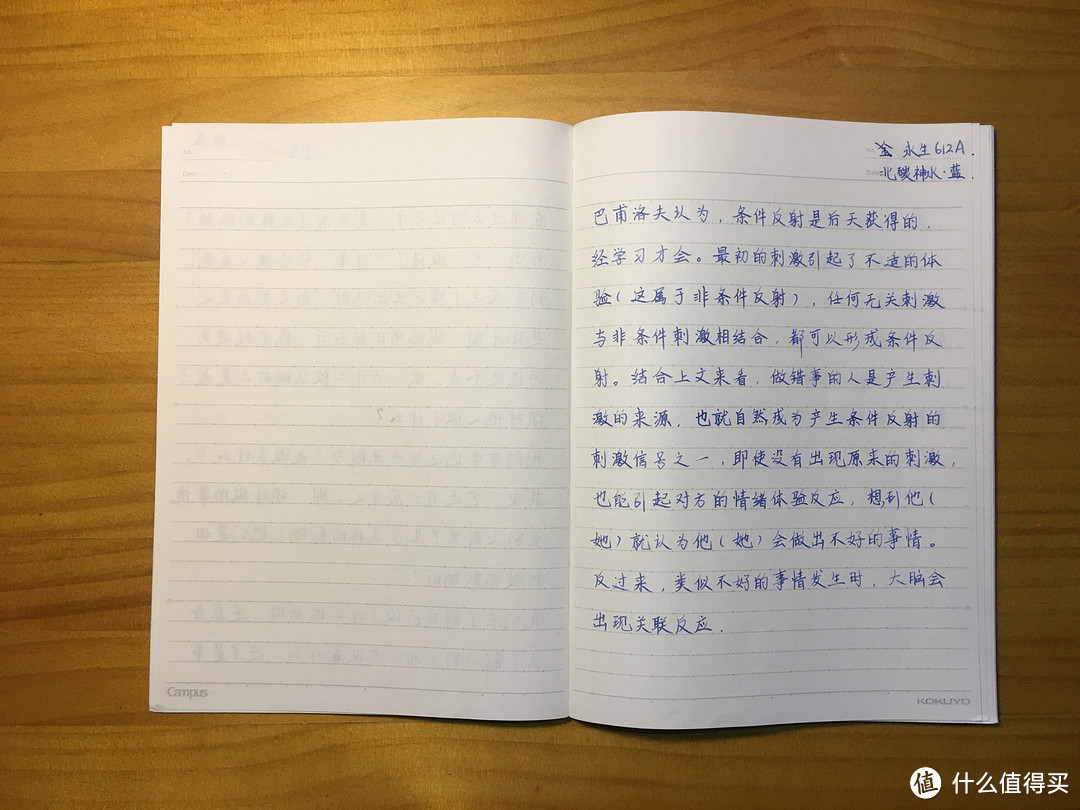 金 永生612A.
北碳神水·蓝.
巴甫洛夫认为，条件反射是后天获得的，
经学习才会。最初的刺激引起了不适的体
验（这属于非条件反射），任何无关刺激
与非条件刺激相结合，都可以形成条件反
射。结合上文来看，做错事的人是产生刺
激的来源，也就自然成为产生条件反射的
刺激信号之一，即使没有出现原来的刺激，
也能引起对方的情绪体验反应，想到他（
她）就认为他（她）会做出不好的事情。
反过来，类似不好的事情发生时，大脑会
出现关联反应.
Campus
KOKUYO
值 什么值得买